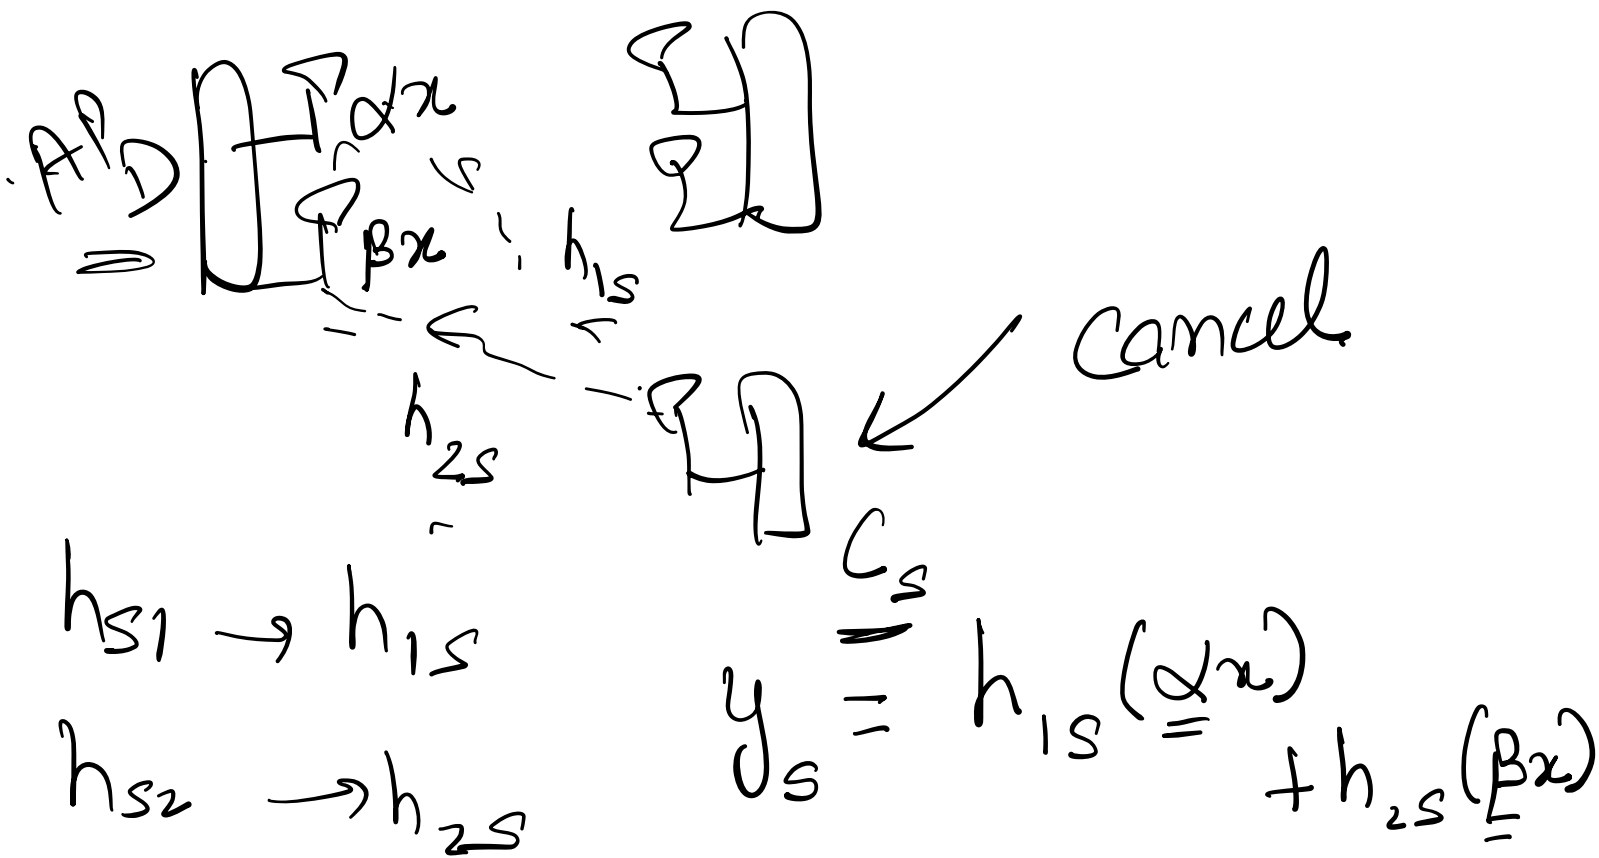 AP_D
αx
βx
h_1s
h_2s
cancel
C_s
h_s1 → h_1s
h_s2 → h_2s
y_s = h_1s(αx)
+ h_2s(βx)